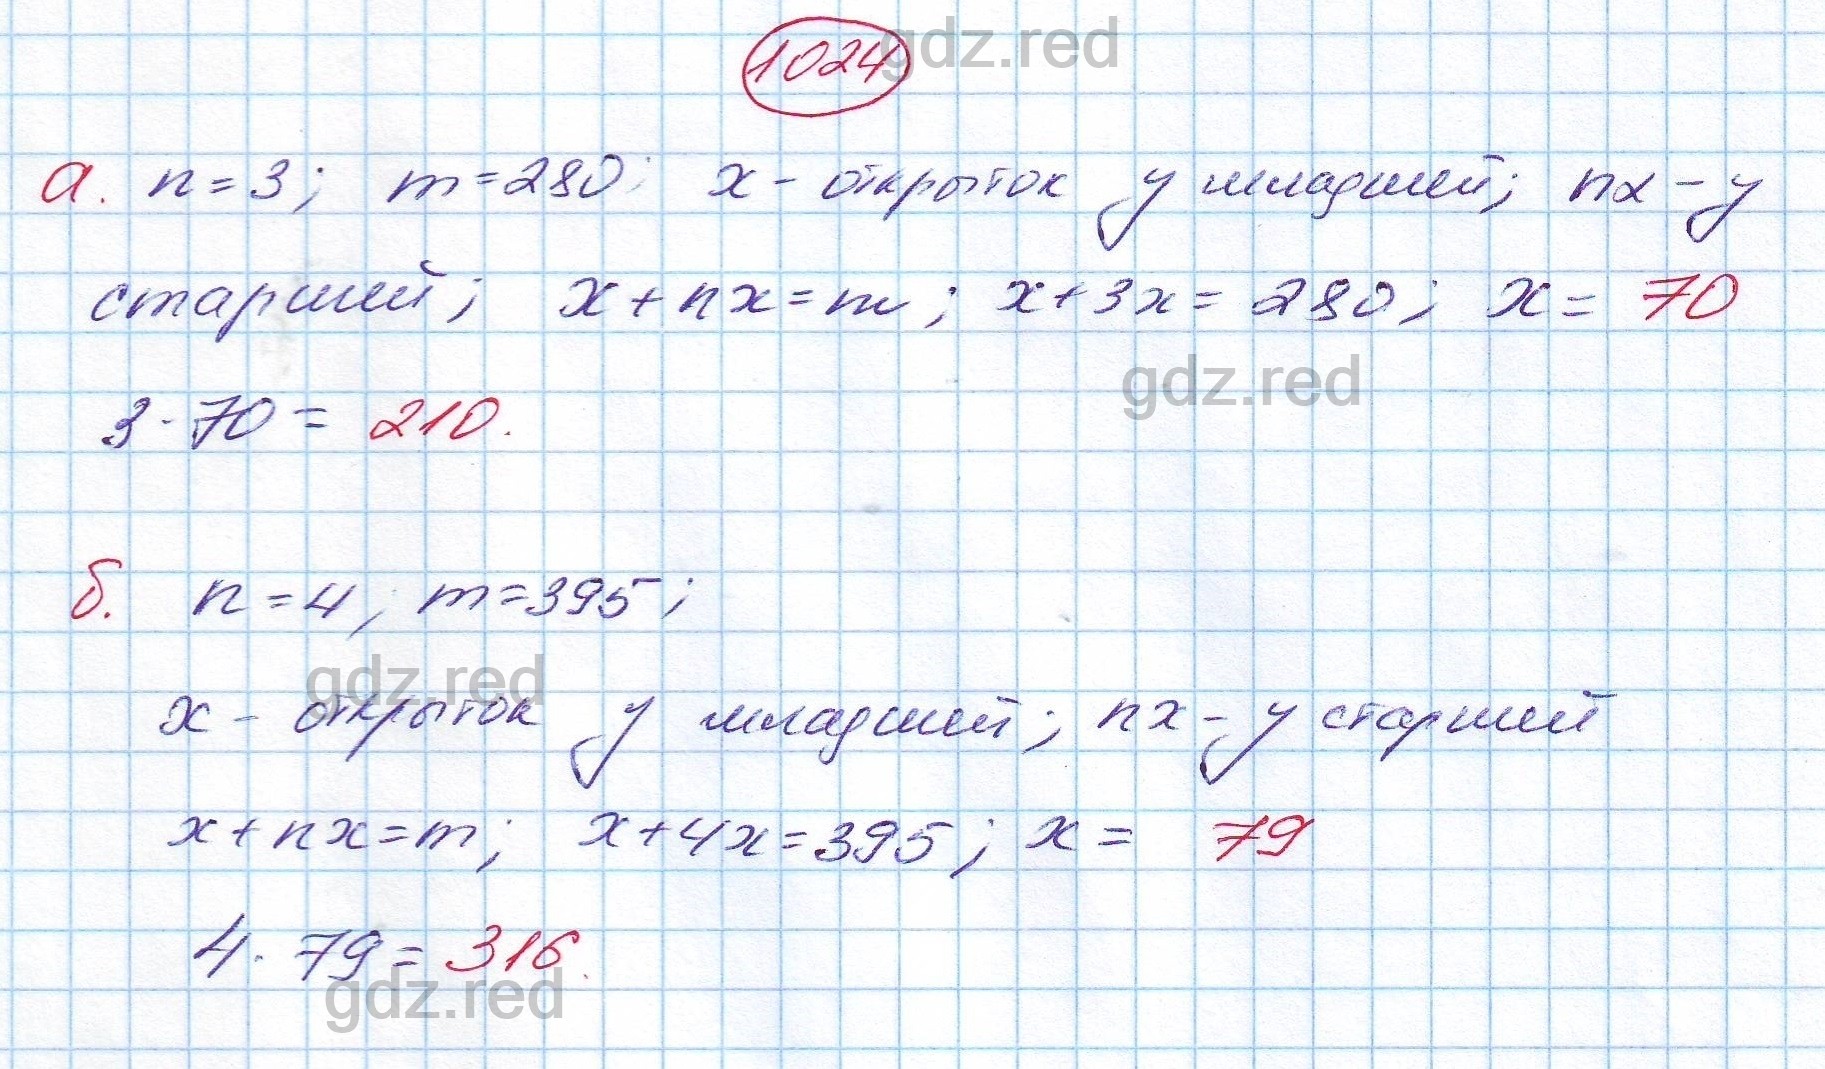 1024
gdz.red
а. n=3; m=280; x - открыток у младшей; nx - у
старшей; x+nx=m; x+3x=280; x= 70
gdz.red
3·70= 210.
б. n=4, m=395;
gdz.red
x - открыток у младшей; nx - у старшей
x+nx=m; x+4x=395; x= 79
4·79= 316.
gdz.red